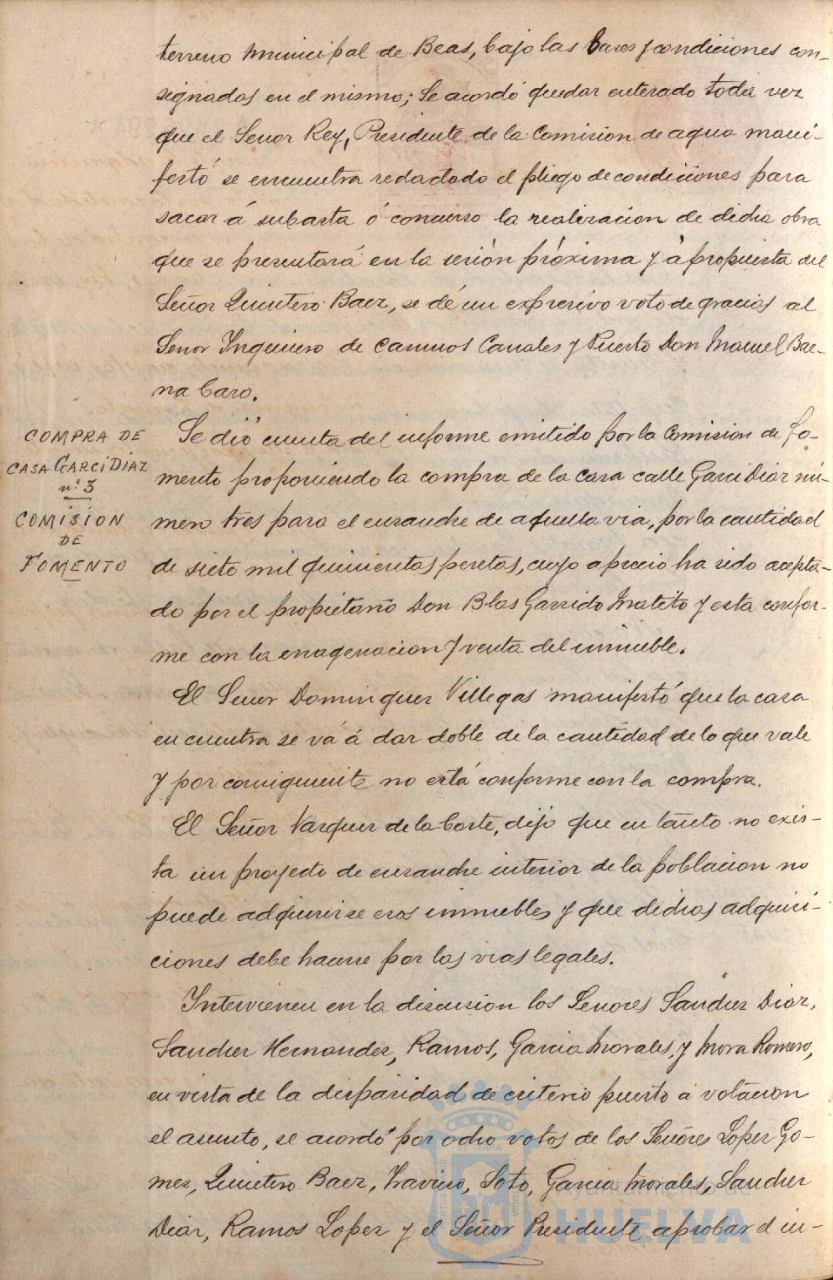 terreno municipal de Beas, bajo las bases y condiciones con-
signadas en el mismo; Se acordó quedar enterado toda vez
que el Señor Rey, Presidente de la Comision de agua mani-
festó se encuentra redactado el pliego de condiciones para
sacar á subasta ó concurso la realizacion de dicha obra
que se presentará en la sesión próxima y á propuesta del
Señor Quintero Baez, se dé un expresivo voto de gracias al
Senor Ingeniero de Caminos Canales y Puerto Don Manuel Bae-
na Caro.
COMPRA DE
CASA GARCI DIAZ
nº 3
COMISION
DE
FOMENTO
Se dió cuenta del informe emitido por la Comision de Fo-
mento proponiendo la compra de la casa calle Garci Diaz nú-
mero tres para el ensanche de aquella via, por la cantidad
de siete mil quinientas pesetas, cuyo aprecio ha sido acepta-
do por el propietario Don Blas Garrido Mateito y esta confor-
me con la enagenacion y venta del inmueble.
El Senor Dominguez Villegas manifestó que la casa
en cuentra se vá á dar doble de la cantidad de lo que vale
y por consiguiente no está conforme con la compra.
El Señor Vazquez de la Corte, dijo que en tanto no exis-
ta un proyecto de ensanche interior de la poblacion no
puede adquirirse esos inmuebles y que dichas adquisi-
ciones debe hacerse por las vias legales.
Intervienen en la discusion los Senores Sanchez Diaz,
Sanchez Hernandez, Ramos, Garcia Morales, y Mora Romero,
en vista de la disparidad de criterio puesto a votacion
el asunto, se acordó por ocho votos de los Señores Lopez Go-
mez, Quintero Baez, Soto, Garcia Morales, Sanchez
Diaz, Ramos Lopez y el Señor Presidente aprobar el in-
Ayuntamiento de
HUELVA